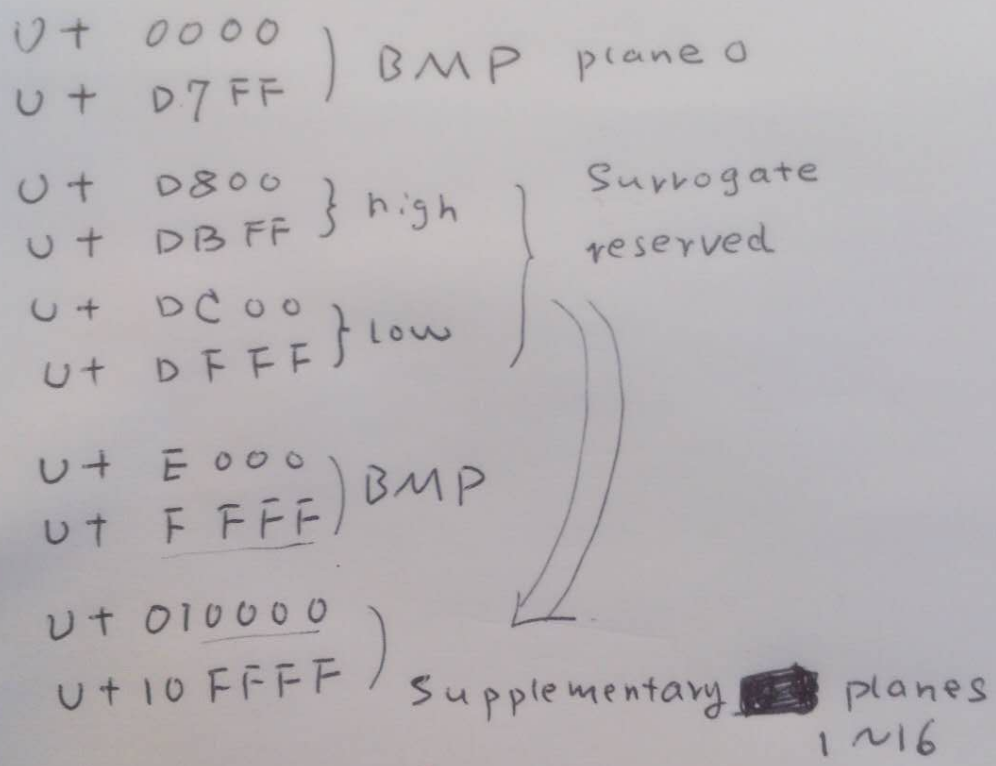 U+ 0000
U+ D7FF
BMP plane 0
U+ D800
U+ DBFF
high
U+ DC00
U+ DFFF
low
Surrogate
reserved
U+ E000
U+ FFFF
BMP
U+ 010000
U+ 10FFFF
Supplementary planes
1 ~16